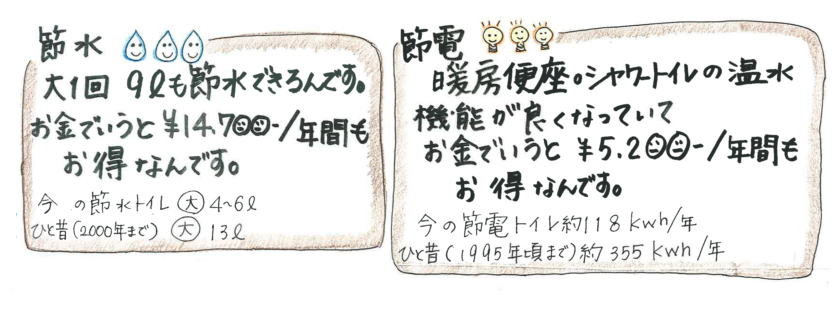 節水
大1回 9ℓも節水できるんです。
お金でいうと ¥14.700-/年間も
お得なんです。
今の節水トイレ 大 4~6ℓ
ひと昔(2000年まで) 大 13ℓ
節電
暖房便座。シャワートイレの温水
機能が良くなっていて
お金でいうと ¥5.200-/年間も
お得なんです。
今の節電トイレ約118kwh/年
ひと昔(1995年頃まで)約355kwh/年